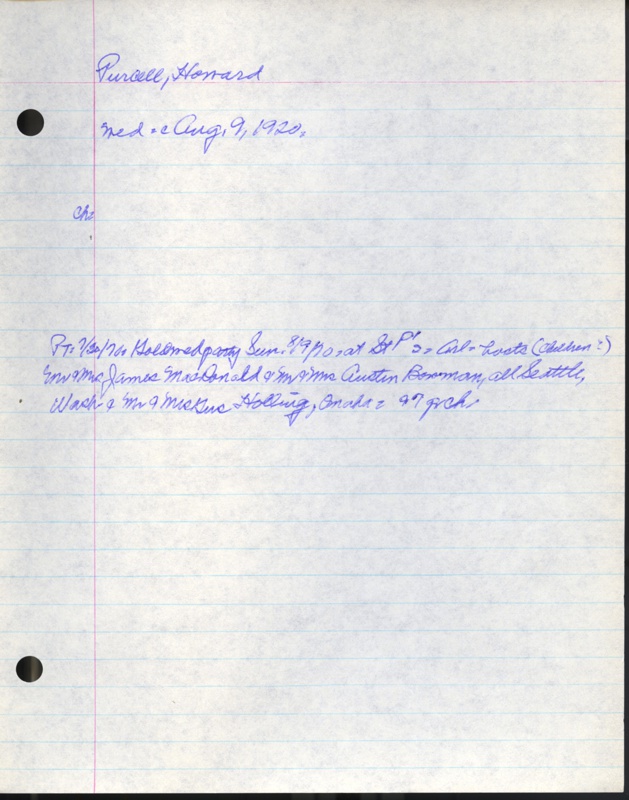 Purcell, Howard
Wed = c Aug. 9, 1920.
Ch:
PT: 7/30/70 Gold Wed party Sun. 8/9/70 at St P's = Arl = hosts (children?)
Mr & Mrs James MacDonald & Mr & Mrs Austin Bowman, all Seattle,
Wash & Mr & Mrs Gus Holling, Omaha = 27 grch.